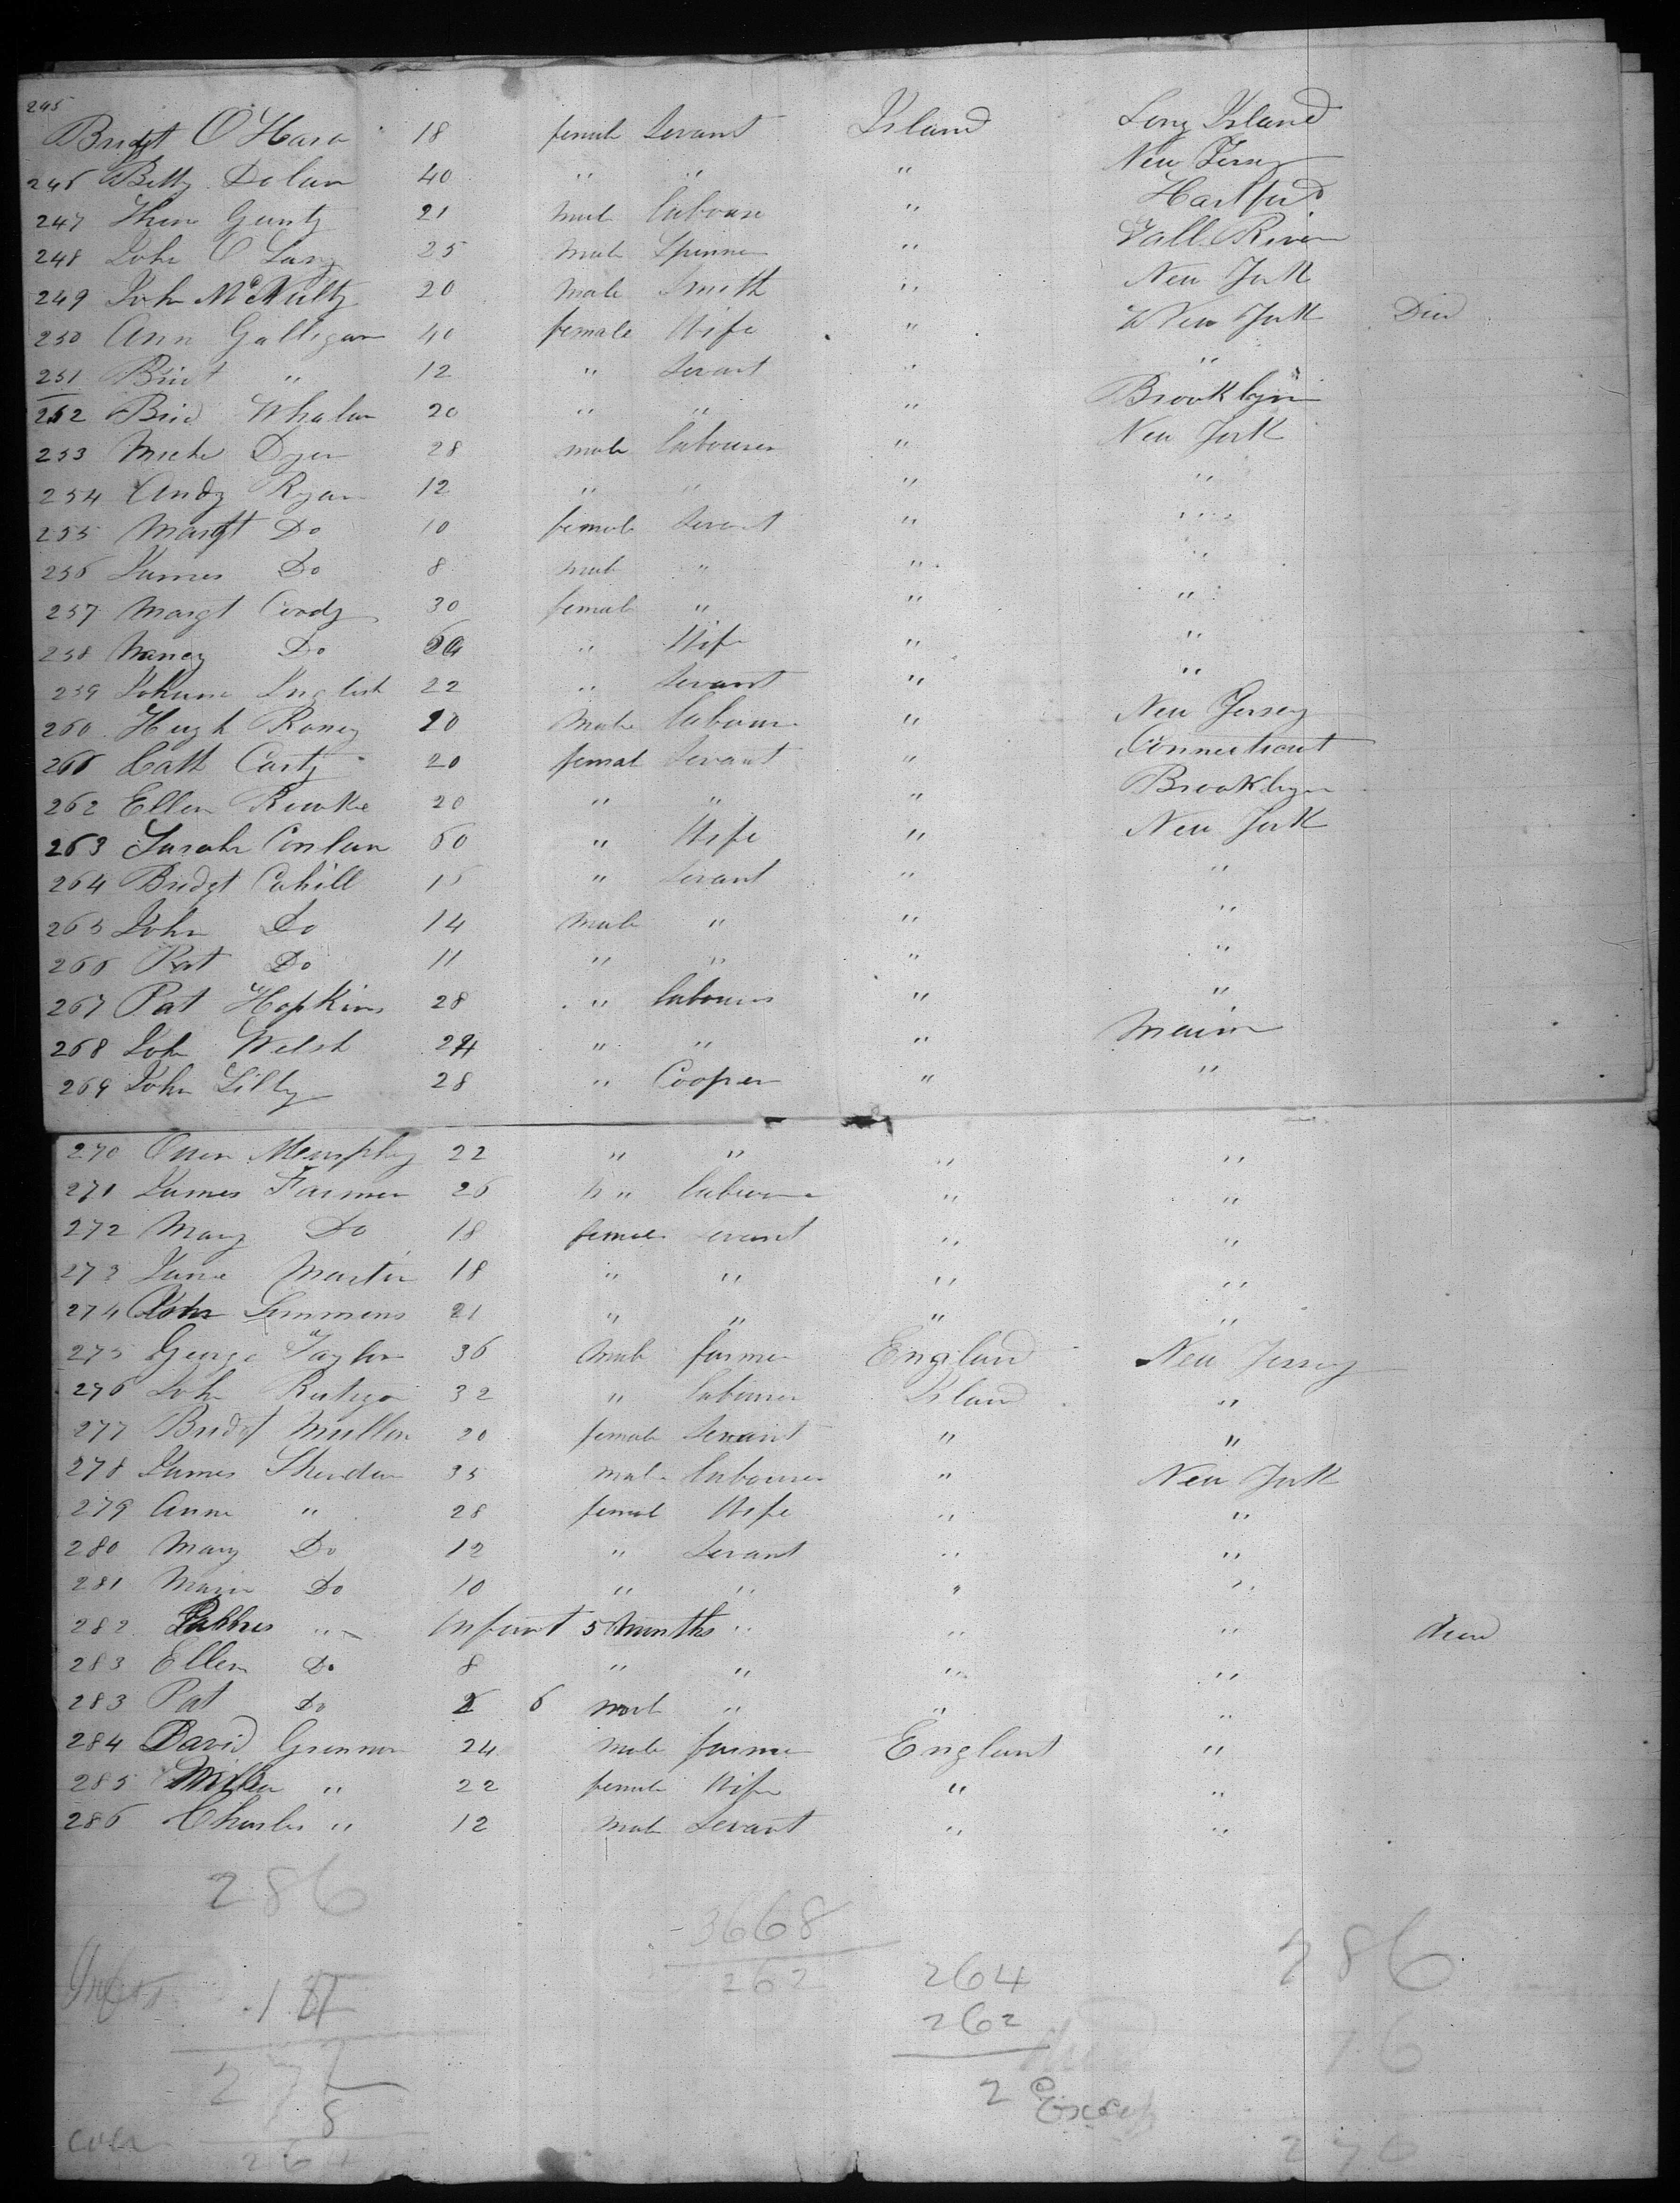 245 Bridgt O'Hara 18 female Servant Irland Long Island
246 Betty Dolan 40 " " " New Jersey
247 Genty 21 male labourer " Hartford
248 John O 25 male Spinner " Fall River
249 John McNulty 20 male Smith " New York
250 Ann Galligan 40 female Wife " New York Died
251 Bridt " 12 " Servant " "
252 Brid Whalan 20 " " " Brooklyn
253 Michl Dyer 28 male labourer " New York
254 Andy Ryan 12 " " " "
255 Margt Do 10 female Servant " "
256 James Do 8 male " " "
257 Margt Condy 30 female " " "
258 Nancy Do " Wife " "
259 English 22 " Servant " "
260 Hugh Roney 20 male labourer " New Jersey
261 Cath Carty 20 femal Servant " Connecticut
262 Ellen Rourke 20 " " " Brooklyn
263 Sarah Conlan 60 " Wife " New York
264 Bridgt Cahill 15 " Servant " "
265 John Do 14 male " " "
266 Pat Do 11 " " " "
267 Pat Hopkins 28 " labourer " "
268 John Welsh 24 " " " Maine
269 John Lilly 28 " Cooper " "
270 Owen Murphy 22 " " " "
271 James Farmer 26 " labourer " "
272 Mary Do 18 female Servant " "
273 Jane Martin 18 " " " "
274 John Simmons 21 " " " "
275 George Taylor 36 male farmer England New Jersey
276 John 32 " labourer Irland "
277 Bridgt Mullen 20 female Servant " "
278 James Sheridan 35 male labourer " New York
279 Anne " 28 female Wife " "
280 Mary Do 12 " Servant " "
281 Do 10 " " " "
282 " Infant 5 Months " " " died
283 Ellen Do 8 " " " "
283 Pat Do 6 male " " "
284 David Grennon 24 male farmer England "
285 " 22 female Wife " "
286 Charles " 12 male Servant " "
286
3668
262
264
262
2 Excess
286
16
270
8
264